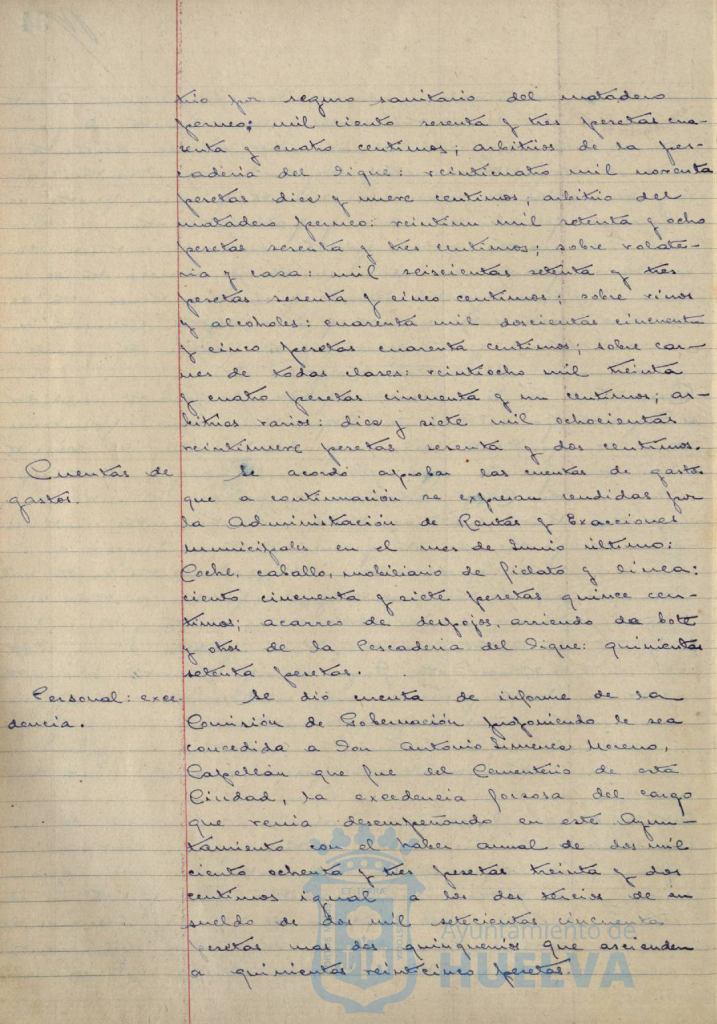 trio por seguro sanitario del matadero
perneo: mil ciento sesenta y tres pesetas cua-
renta y cuatro centimos; arbitrios de la pes-
caderia del Dique: veinticuatro mil noventa
pesetas diez y nueve centimos; arbitrio del
matadero perneo: veintiun mil setenta y ocho
pesetas sesenta y tres centimos; sobre volate-
ria y caza: mil seiscientas setenta y tres
pesetas sesenta y cinco centimos; sobre vinos
y alcoholes: cuarenta mil doscientas cincuenta
y cinco pesetas cuarenta centimos; sobre car-
nes de todas clases: veintiocho mil treinta
y cuatro pesetas cincuenta y un centimos; ar-
bitrios varios: diez y siete mil ochocientas
veintinueve pesetas sesenta y dos centimos.
Cuentas de
gastos.
Se acordó aprobar las cuentas de gastos
que a continuación se expresan rendidas por
la Administración de Rentas y Exacciones
municipales en el mes de Junio último:
Coche, caballo, mobiliario de fielato y linea:
ciento cincuenta y siete pesetas quince cen-
timos; acarreo de despojos, arriendo de bote
y otros de la Pescaderia del Dique: quinientas
setenta pesetas.
Personal: exce-
dencia.
Se dió cuenta de informe de la
Comisión de Gobernación proponiendo le sea
concedida a Don Antonio Jimenez Moreno,
Capellán que fue del Cementerio de esta
Ciudad, la excedencia forzosa del cargo
que venia desempeñando en este Ayun-
tamiento con el haber anual de dos mil
ciento ochenta y tres pesetas treinta y dos
centimos igual a los dos tercios de su
sueldo de dos mil setecientas cincuenta
pesetas mas dos quinquenios que ascienden
a quinientas veinticinco pesetas.
Ayuntamiento de
HUELVA